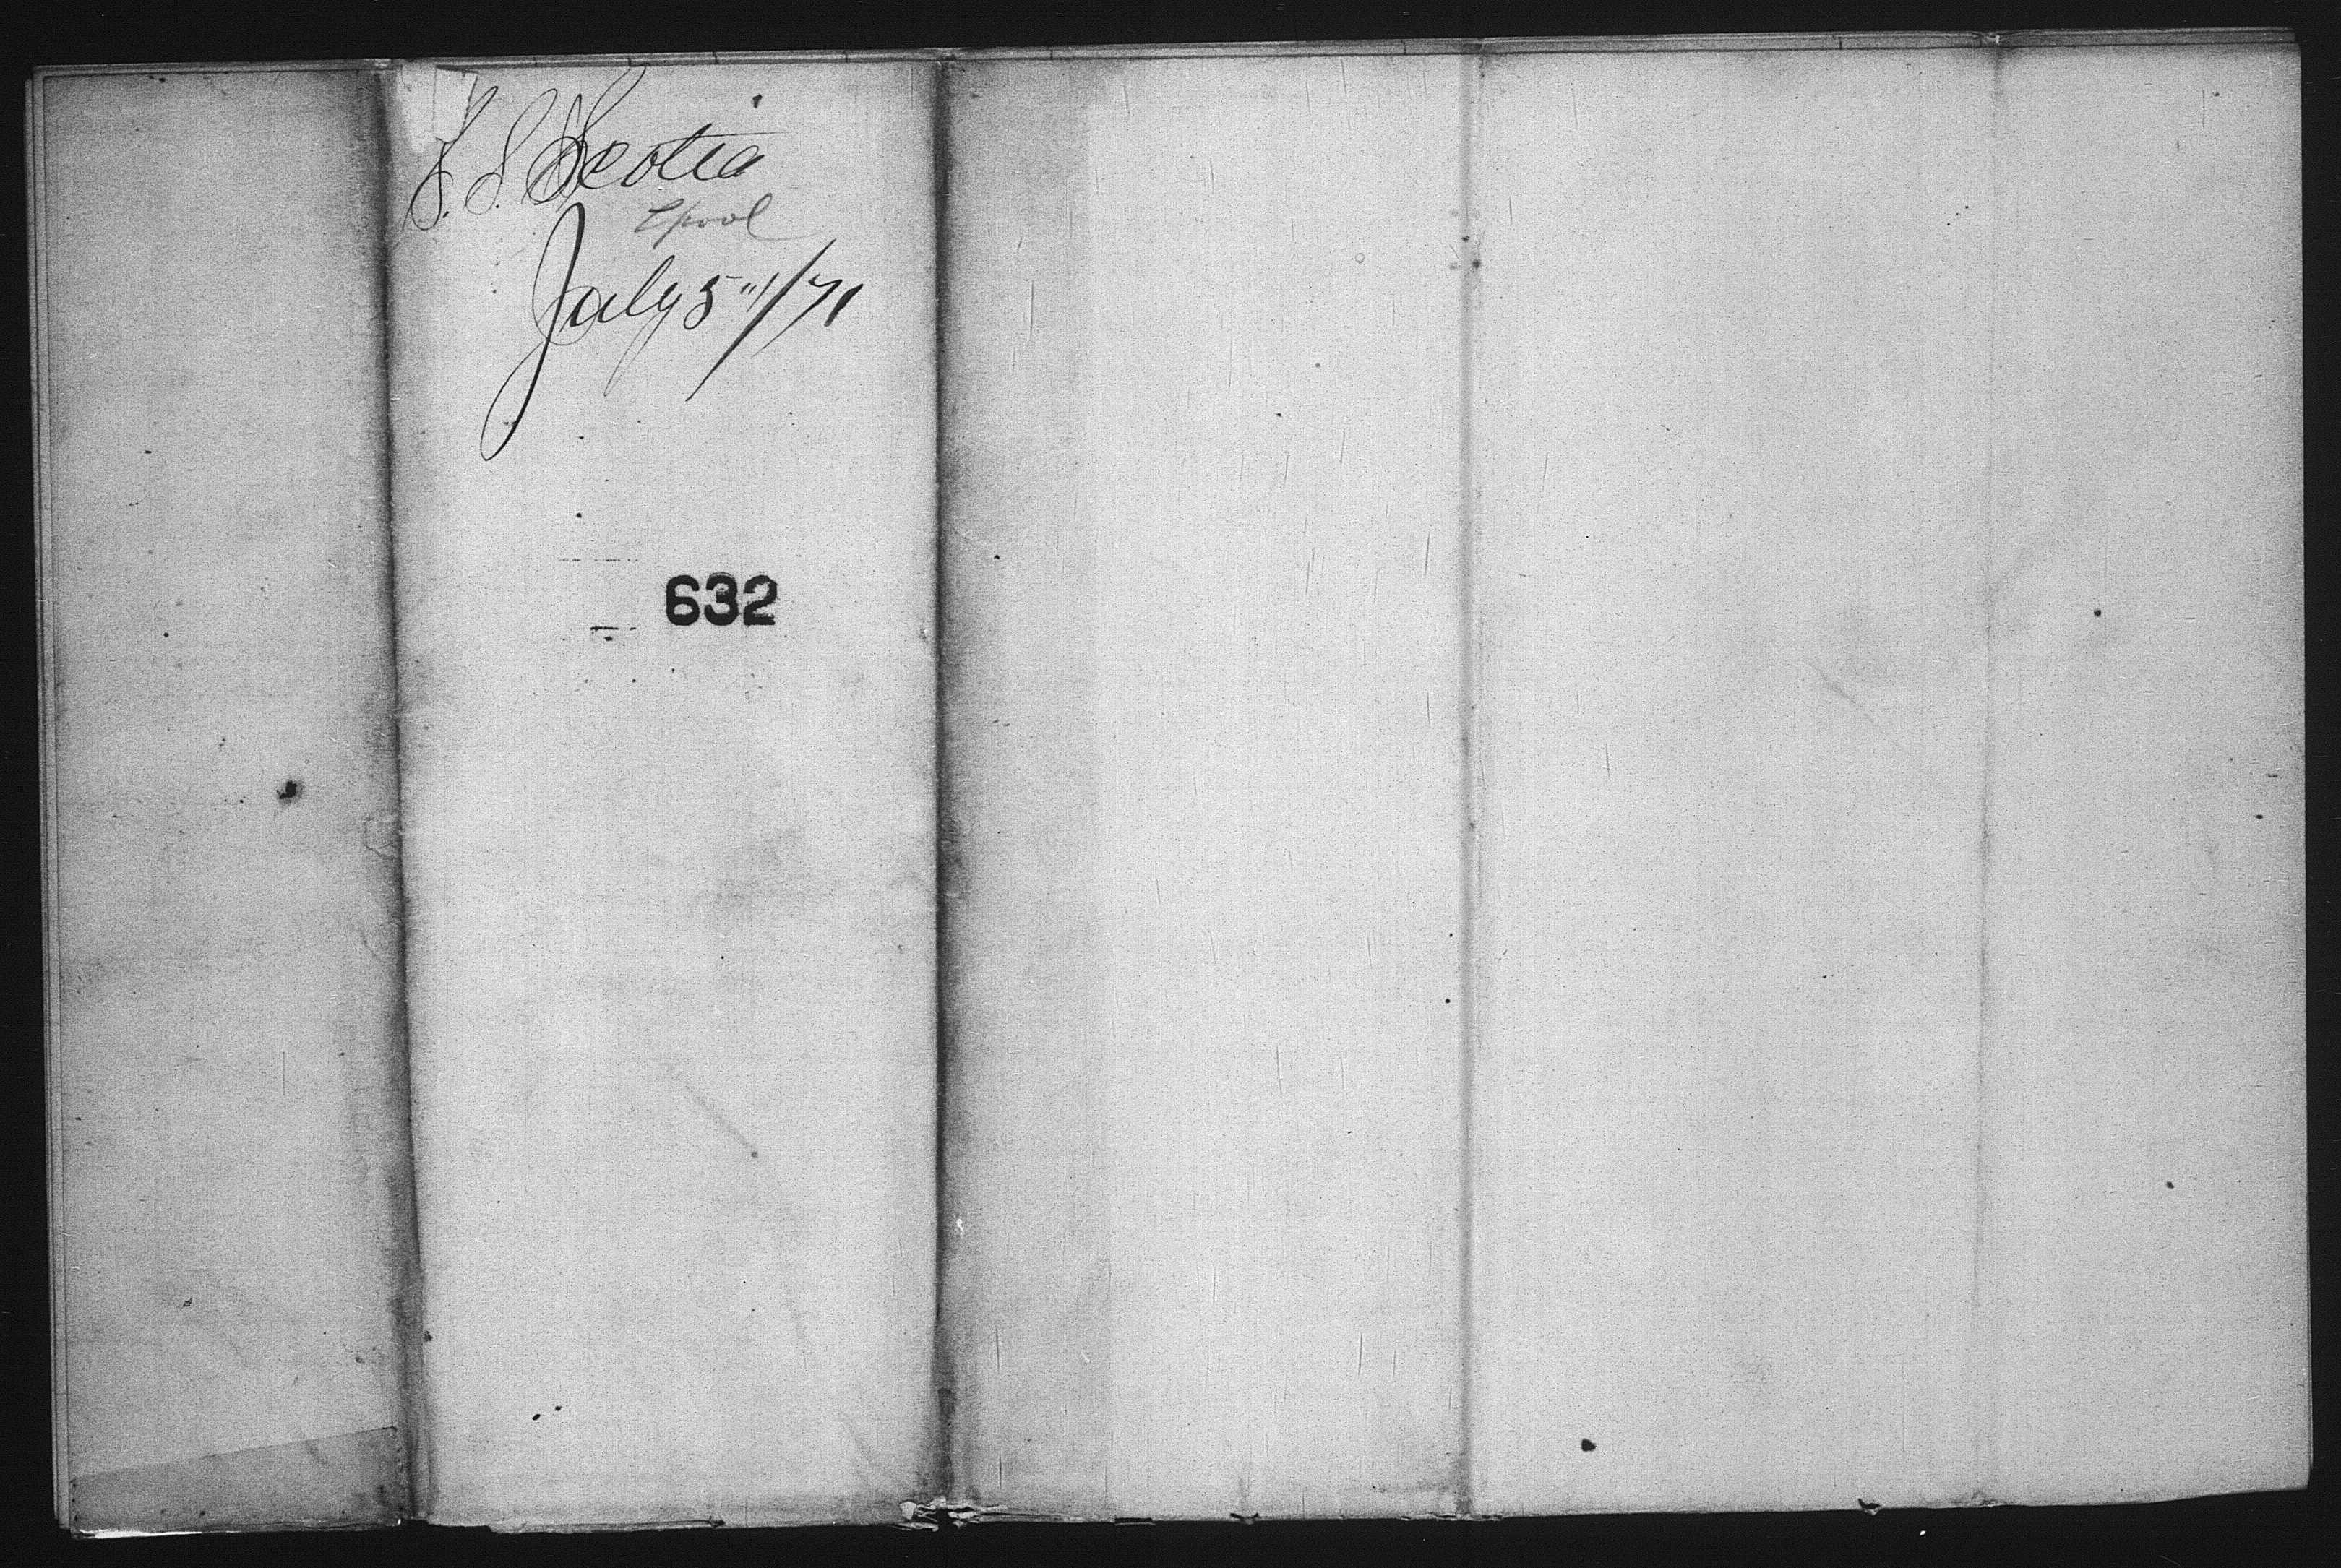 S. S. Scotia
Lpool
July 5"/71
632